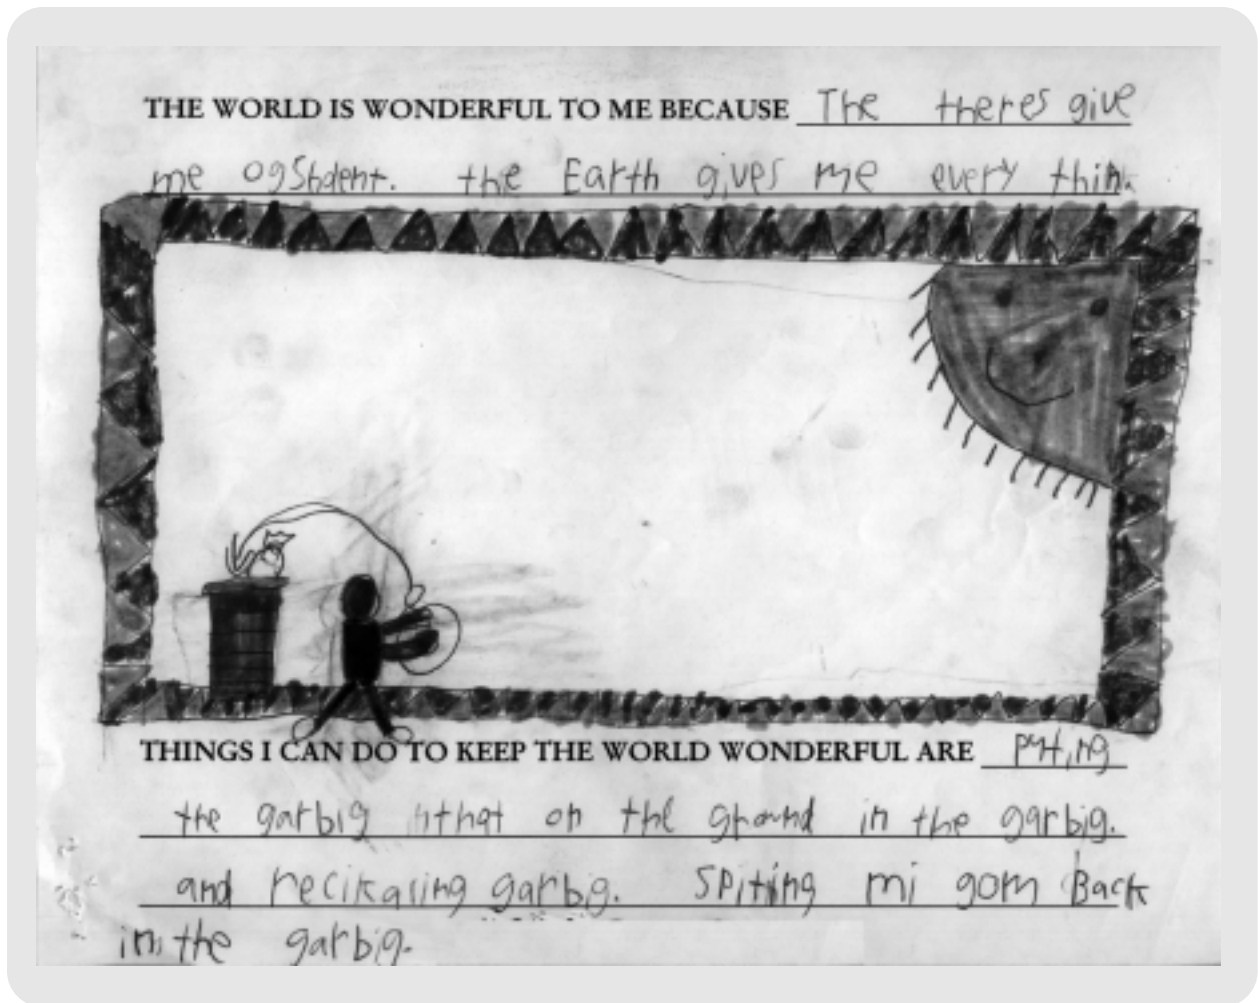 THE WORLD IS WONDERFUL TO ME BECAUSE The theres give
me ogStdent. the Earth gives me every thin
THINGS I CAN DO TO KEEP THE WORLD WONDERFUL ARE
the garbig on the ground in the garbig.
and recikaling garbig. Spiting mi gom Back
in the garbig.